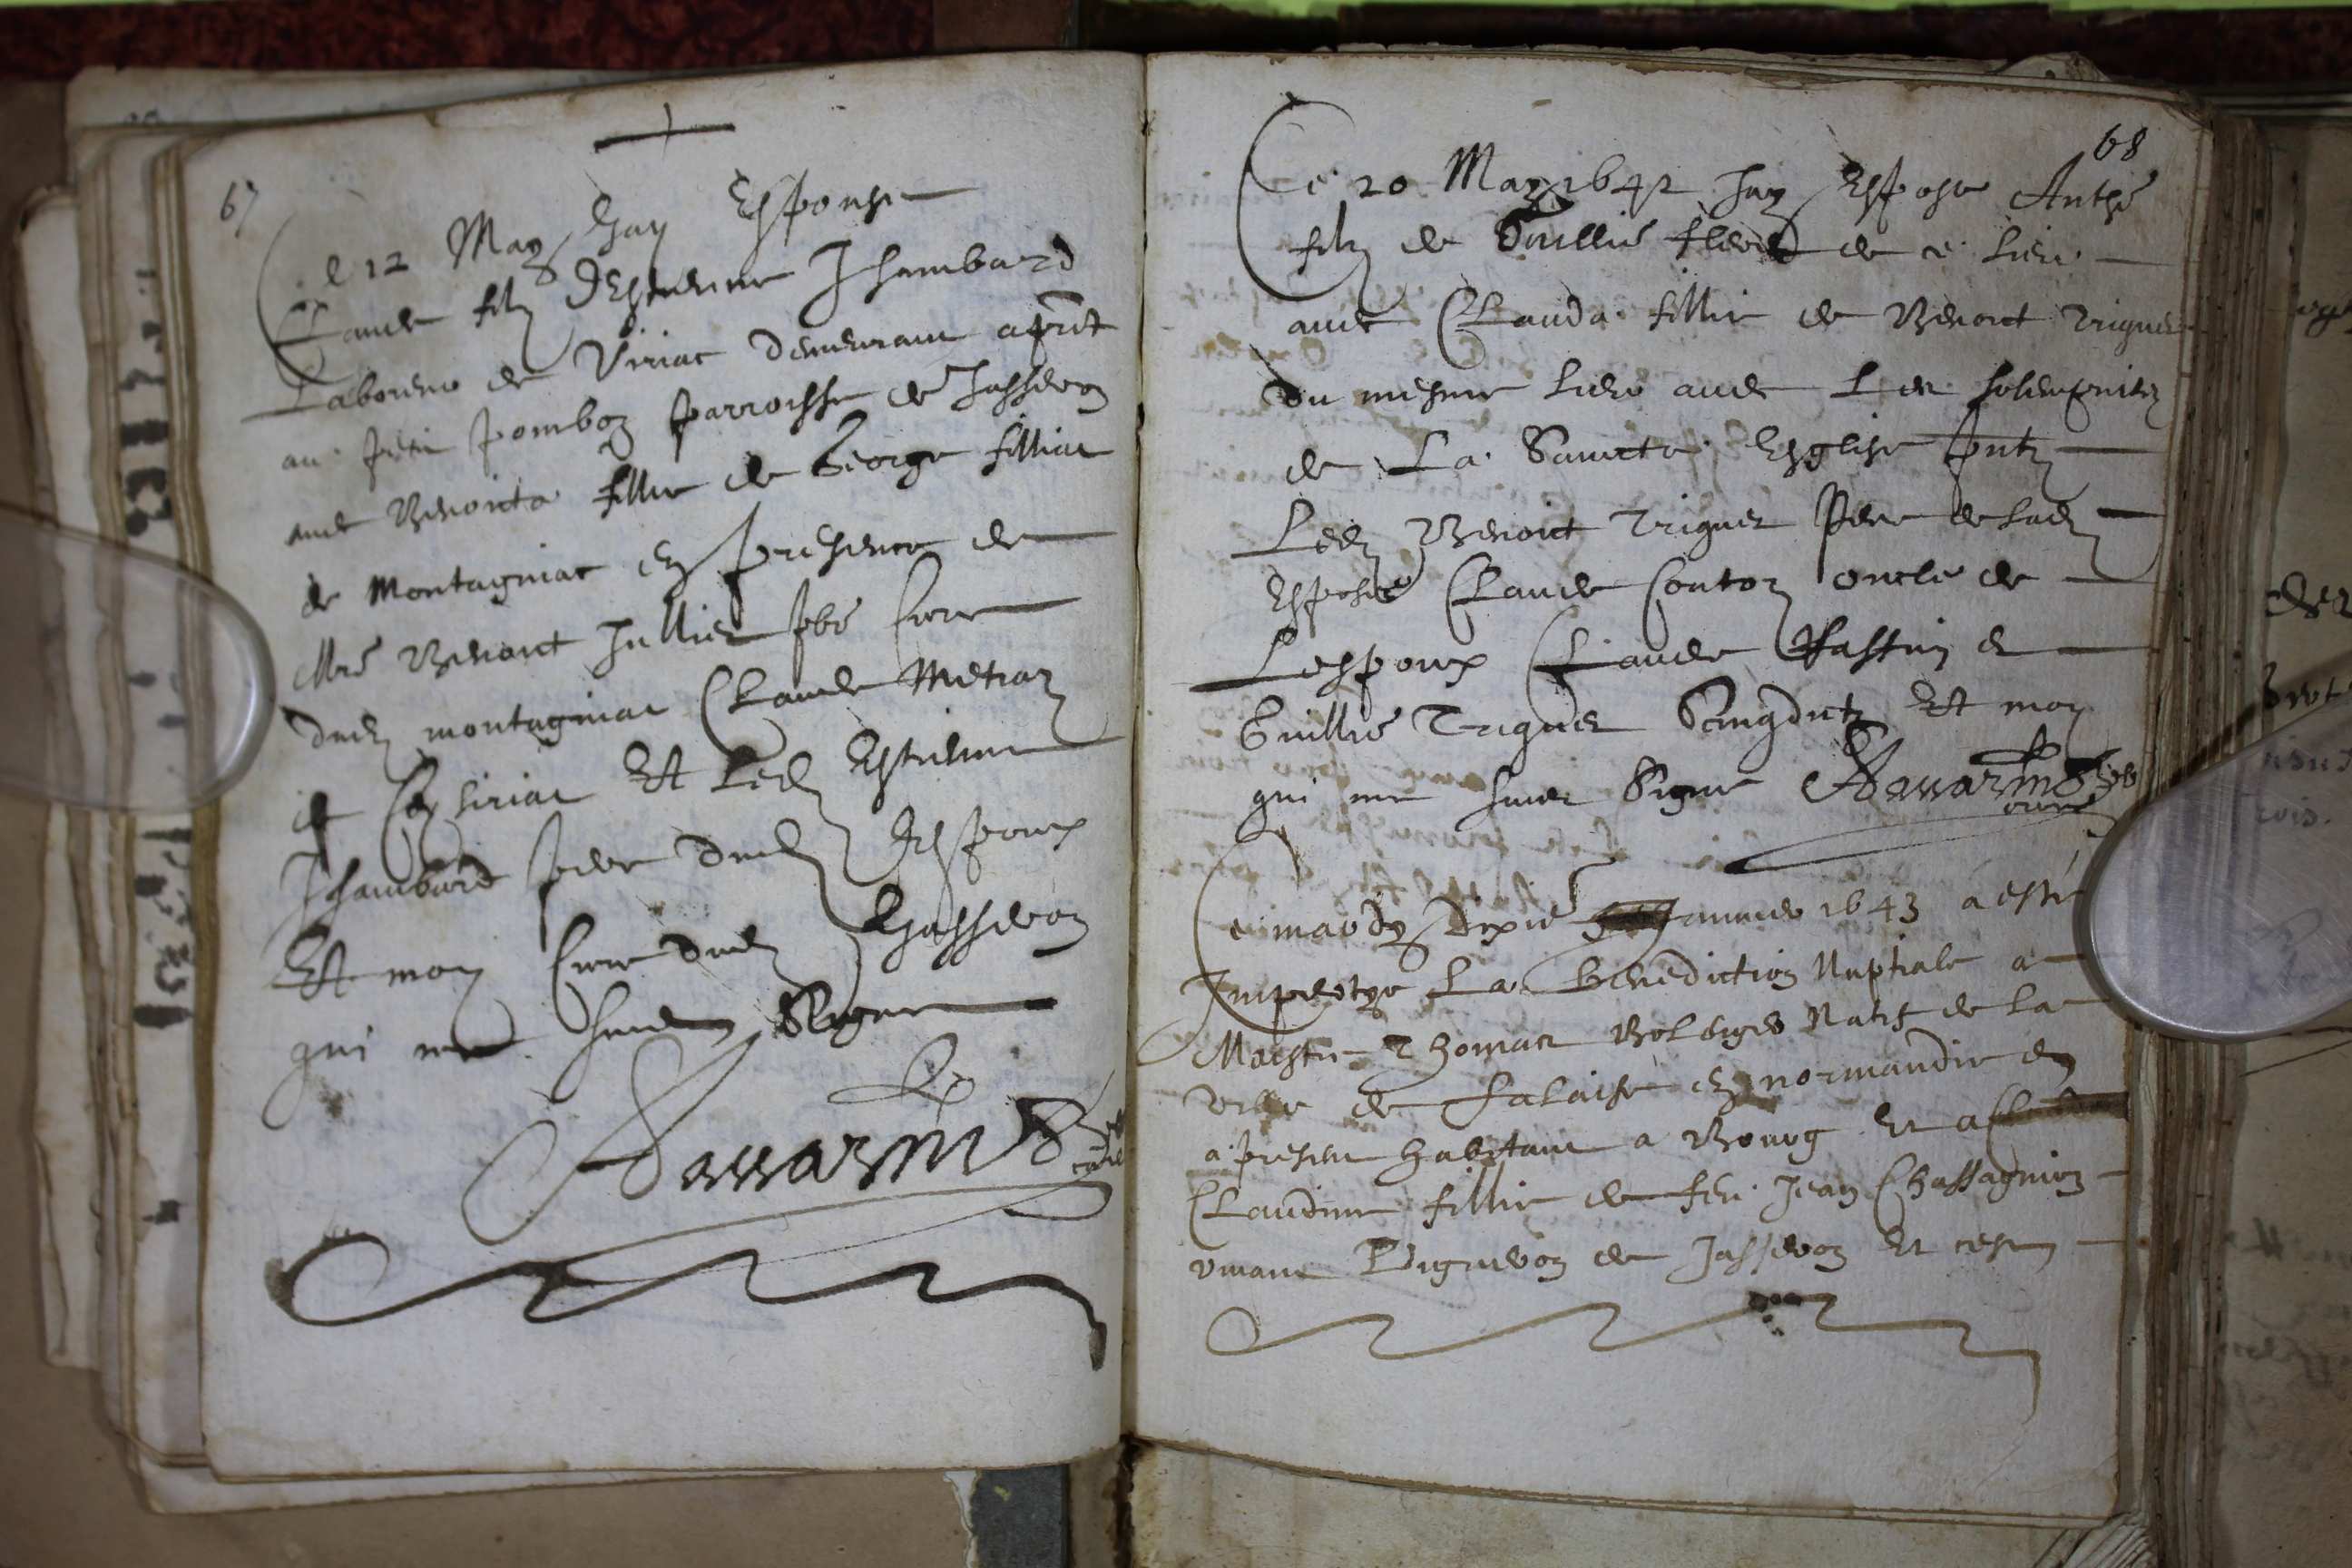 67
Ce 12 May Jay Esponse
Claude filz DEstienne Jhambard
Laboreur de Viriac demeurant apnt
au petit pomboz parroisse de Jasseron
avec Benoita fillie de George filliat
de Montagniac en presence de
Mre Benoict Jullier pbr Cure
dud montagniac Claude Metraz
de siriac Et Led Estienne
Jhambard pere dud Espoux
Et moy Cure dud Jasseron
qui me suis Signe
68
Ce 20 May 1642 Jay Espose Anthe
filz de Guillie de ce lieu
avec Clauda fillie de Benoict Triguet
du mesme lieu avec Les solempnitez
de La Saincte Esglise pntz
Led Benoict Triguet Pere de lad
Espose Claude Contoz oncle de
Lespoux Claude et
Guillie Triguet Et moy
qui me suis Signe
cure
Ce mardy dixie Janvier 1643 a este
Impertye La benediction Nuptiale a
Maistre Thomas Natif de la
ville de falaise en normandie en
a present habitant a Bourg Et a
Claudine fillie de feu Jean Chassagnion
vivant Vigneron de Jasseron Et ce en